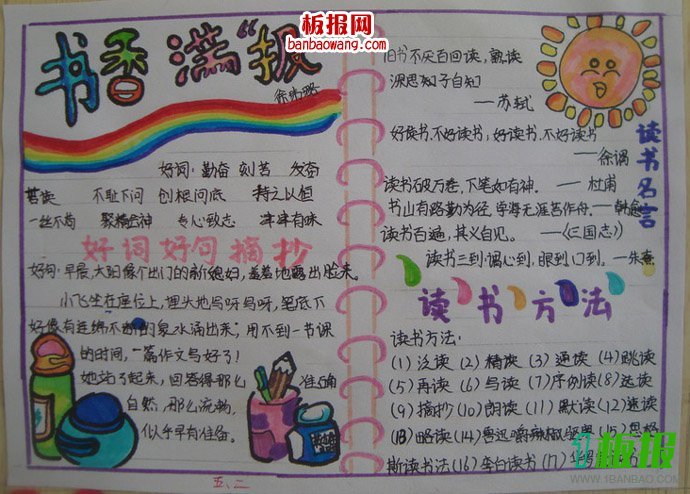 板报网
banbaowang.com
书香满“报
好词：勤奋 刻苦 发奋
苦读 不耻下问 刨根问底 持之以恒
一丝不苟 聚精会神 专心致志 津津有味
好词好句摘抄
好句：早晨，太阳像个出门的新媳妇，羞羞地露出脸来。
小飞坐在座位上，埋头地写呀写呀，笔底下
好像有连绵不断的泉水涌出来，用不到一节课
的时间，一篇作文写好了！
她站了起来，回答得那么准确
自然，那么流畅，
似乎早有准备。
五、二
旧书不厌百回读，熟读
深思知子自知
——苏轼
好读书，不好读书，好读书，不好读书
——徐渭
读书破万卷，下笔如有神。——杜甫
书山有路勤为径，学海无涯苦作舟。——韩愈
读书百遍，其义自见。——《三国志》
读书三到：谓心到，眼到口到。——朱熹
读书名言
读书方法
读书方法：
(1) 泛读 (2) 精读 (3) 通读 (4) 跳读
(5) 再读 (6) 写读 (7) 序例读 (8) 选读
(9) 摘抄 (10) 朗读 (11) 默读 (12) 速读
(13) 略读 (14) 鲁迅嚼辣椒驱寒 (15)
撕读书法 (16) 李白读书 (17)
板报
WWW.1BANBAO.COM